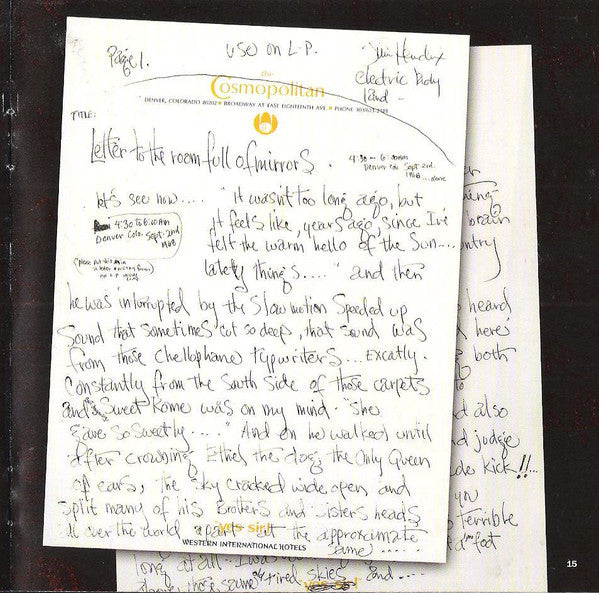 Page 1.
use on L-P.
Jimi Hendrix
electric lady
land -
the
Cosmopolitan
DENVER, COLORADO 80202 • BROADWAY AT EAST EIGHTEENTH AVE. • PHONE 303/623-2181
TITLE:
Letter to the room full of mirrors.
4:30 - 6:00 AM
Denver Colo. Sept. 2nd.
1968
let's see now.... "it wasn't too long ago, but
it feels like, years ago, since I've
felt the warm hello of the Sun....
lately things....." and then
4:30 to 6:00 AM
Denver Colo. Sept. 2nd
1968
(please put this
on L.P.
he was inturrupted by the slow motion speeded up
sound that sometimes cut so deep, that sound was
from those chellophane typwriters... Excatly.
Constantly from the South Side of those carpets
and sweet Rome was on my mind. "She
gave so sweetly....." And on he walked until
after crowning Ethel the dog, the Only Queen
of ears, the Sky cracked wide open and
split many of his Brothers and Sisters heads
all over the world apart at the approximate
same .....
yes sir!
WESTERN INTERNATIONAL HOTELS
brain
heard
here
both
also
and judge
kick!!..
you
so terrible
foot
long at all. I was
those same old tired skies and ....
15